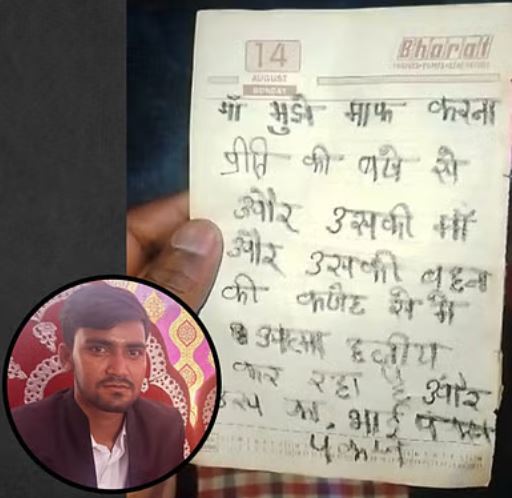 14
AUGUST
SUNDAY
Bharat
माँ मुझे माफ करना
प्रीति की वजे से
और उसकी माँ
और उसकी बहन
की वजह से मैं
आत्मा हतीय
कर रहा हूँ और
उस का, भाई